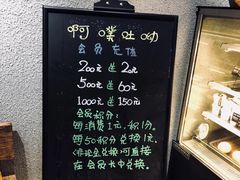 啊噗吐呦
会员充值
200元送20元
500元送60元
1000元送150元
会员积分:
每消费1元,积1分。
每50积分兑换1元
在会员卡中兑换。